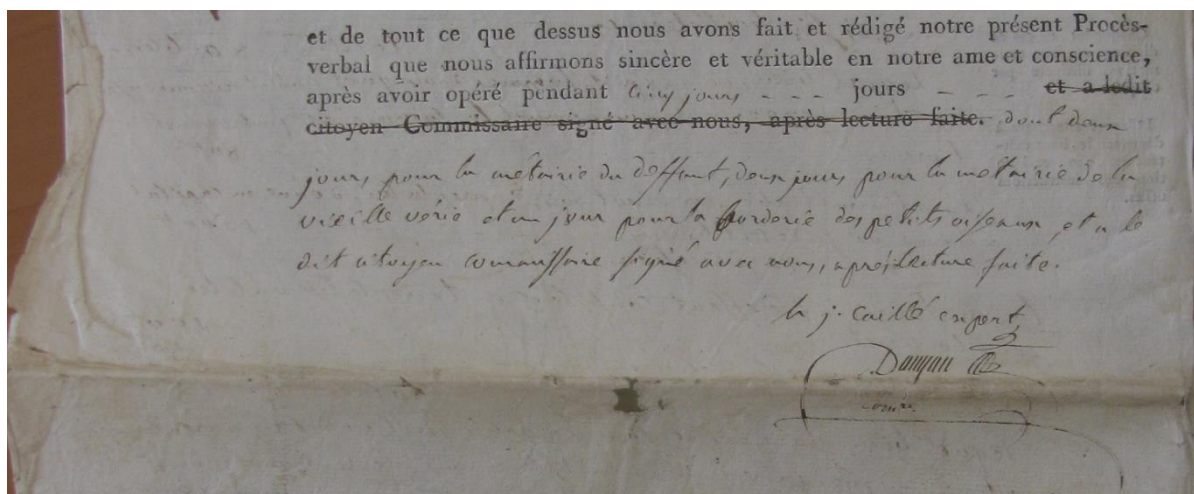 et de tout ce que dessus nous avons fait et rédigé notre présent Procès-
verbal que nous affirmons sincère et véritable en notre ame et conscience,
après avoir opéré pendant cinq jours - - - jours - - - et a ledit
citoyen Commissaire signé avec nous, après lecture faite. dont deux
jours pour la métairie du deffant, deux jours pour la métairie de la
vieille vérie et un jour pour la borderie des petits oiseaux, et a le
dit citoyen commissaire signé avec nous, après lecture faite.
j. caillé expert